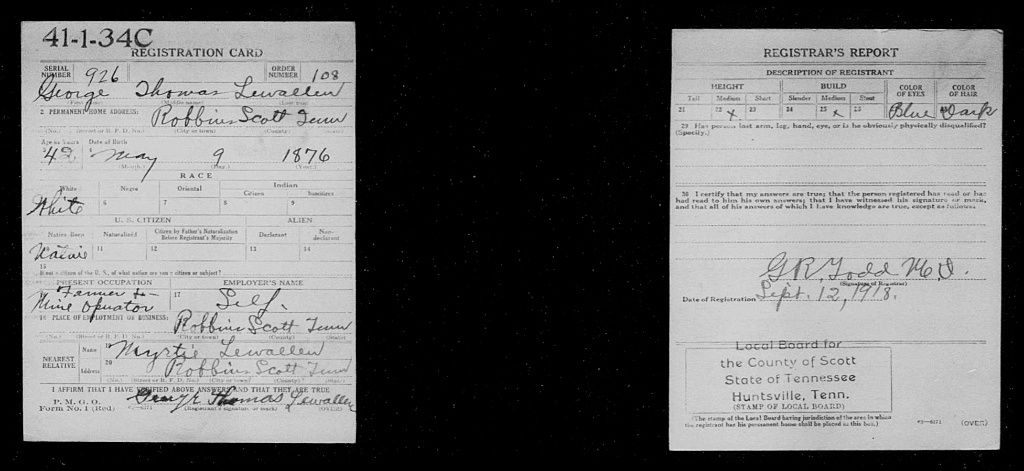 41-1-34C
REGISTRATION CARD
SERIAL NUMBER 926 ORDER NUMBER 108
George Thomas Lewallen
(First name) (Middle name) (Last name)
2 PERMANENT HOME ADDRESS:
Robbins Scott Tenn
(No.) (Street or R. F. D. No.) (City or town) (County) (State)
Age in Years Date of Birth
42 May 9 1876
(Month.) (Day.) (Year.)
RACE
White Negro Oriental Indian
Citizen Noncitizen
White 6 7 8 9
U. S. CITIZEN ALIEN
Native Born Naturalized Citizen by Father's Naturalization Before Registrant's Majority Declarant Non-declarant
Native 11 12 13 14
15
If not a citizen of the U. S., of what nation are you a citizen or subject?
PRESENT OCCUPATION EMPLOYER'S NAME
Farmer &
Mine Operator 17 Self.
18 PLACE OF EMPLOYMENT OR BUSINESS:
Robbins Scott Tenn
(No.) (Street or R. F. D. No.) (City or town) (County) (State)
NEAREST RELATIVE
Name 19 Myrtie Lewallen
Address 20 Robbins Scott Tenn
(No.) (Street or R. F. D. No.) (City or town) (County) (State)
I AFFIRM THAT I HAVE VERIFIED ABOVE ANSWERS AND THAT THEY ARE TRUE
P. M. G. O.
Form No. 1 (Red) George Thomas Lewallen
(Registrant's signature or mark) (OVER)
REGISTRAR'S REPORT
DESCRIPTION OF REGISTRANT
HEIGHT BUILD COLOR OF EYES COLOR OF HAIR
Tall Medium Short Slender Medium Stout
21 22 x 23 24 25 x 26 Blue Dark
29 Has person lost arm, leg, hand, eye, or is he obviously physically disqualified?
(Specify.)
30 I certify that my answers are true; that the person registered has read or has
had read to him his own answers; that I have witnessed his signature or mark,
and that all of his answers of which I have knowledge are true, except as follows:
G R Todd M.D.
(Signature of Registrar)
Date of Registration Sept. 12, 1918.
Local Board for
the County of Scott
State of Tennessee
Huntsville, Tenn.
(STAMP OF LOCAL BOARD)
(The stamp of the Local Board having jurisdiction of the area in which
the registrant has his permanent home shall be placed in this box.)
03—6171 (OVER)